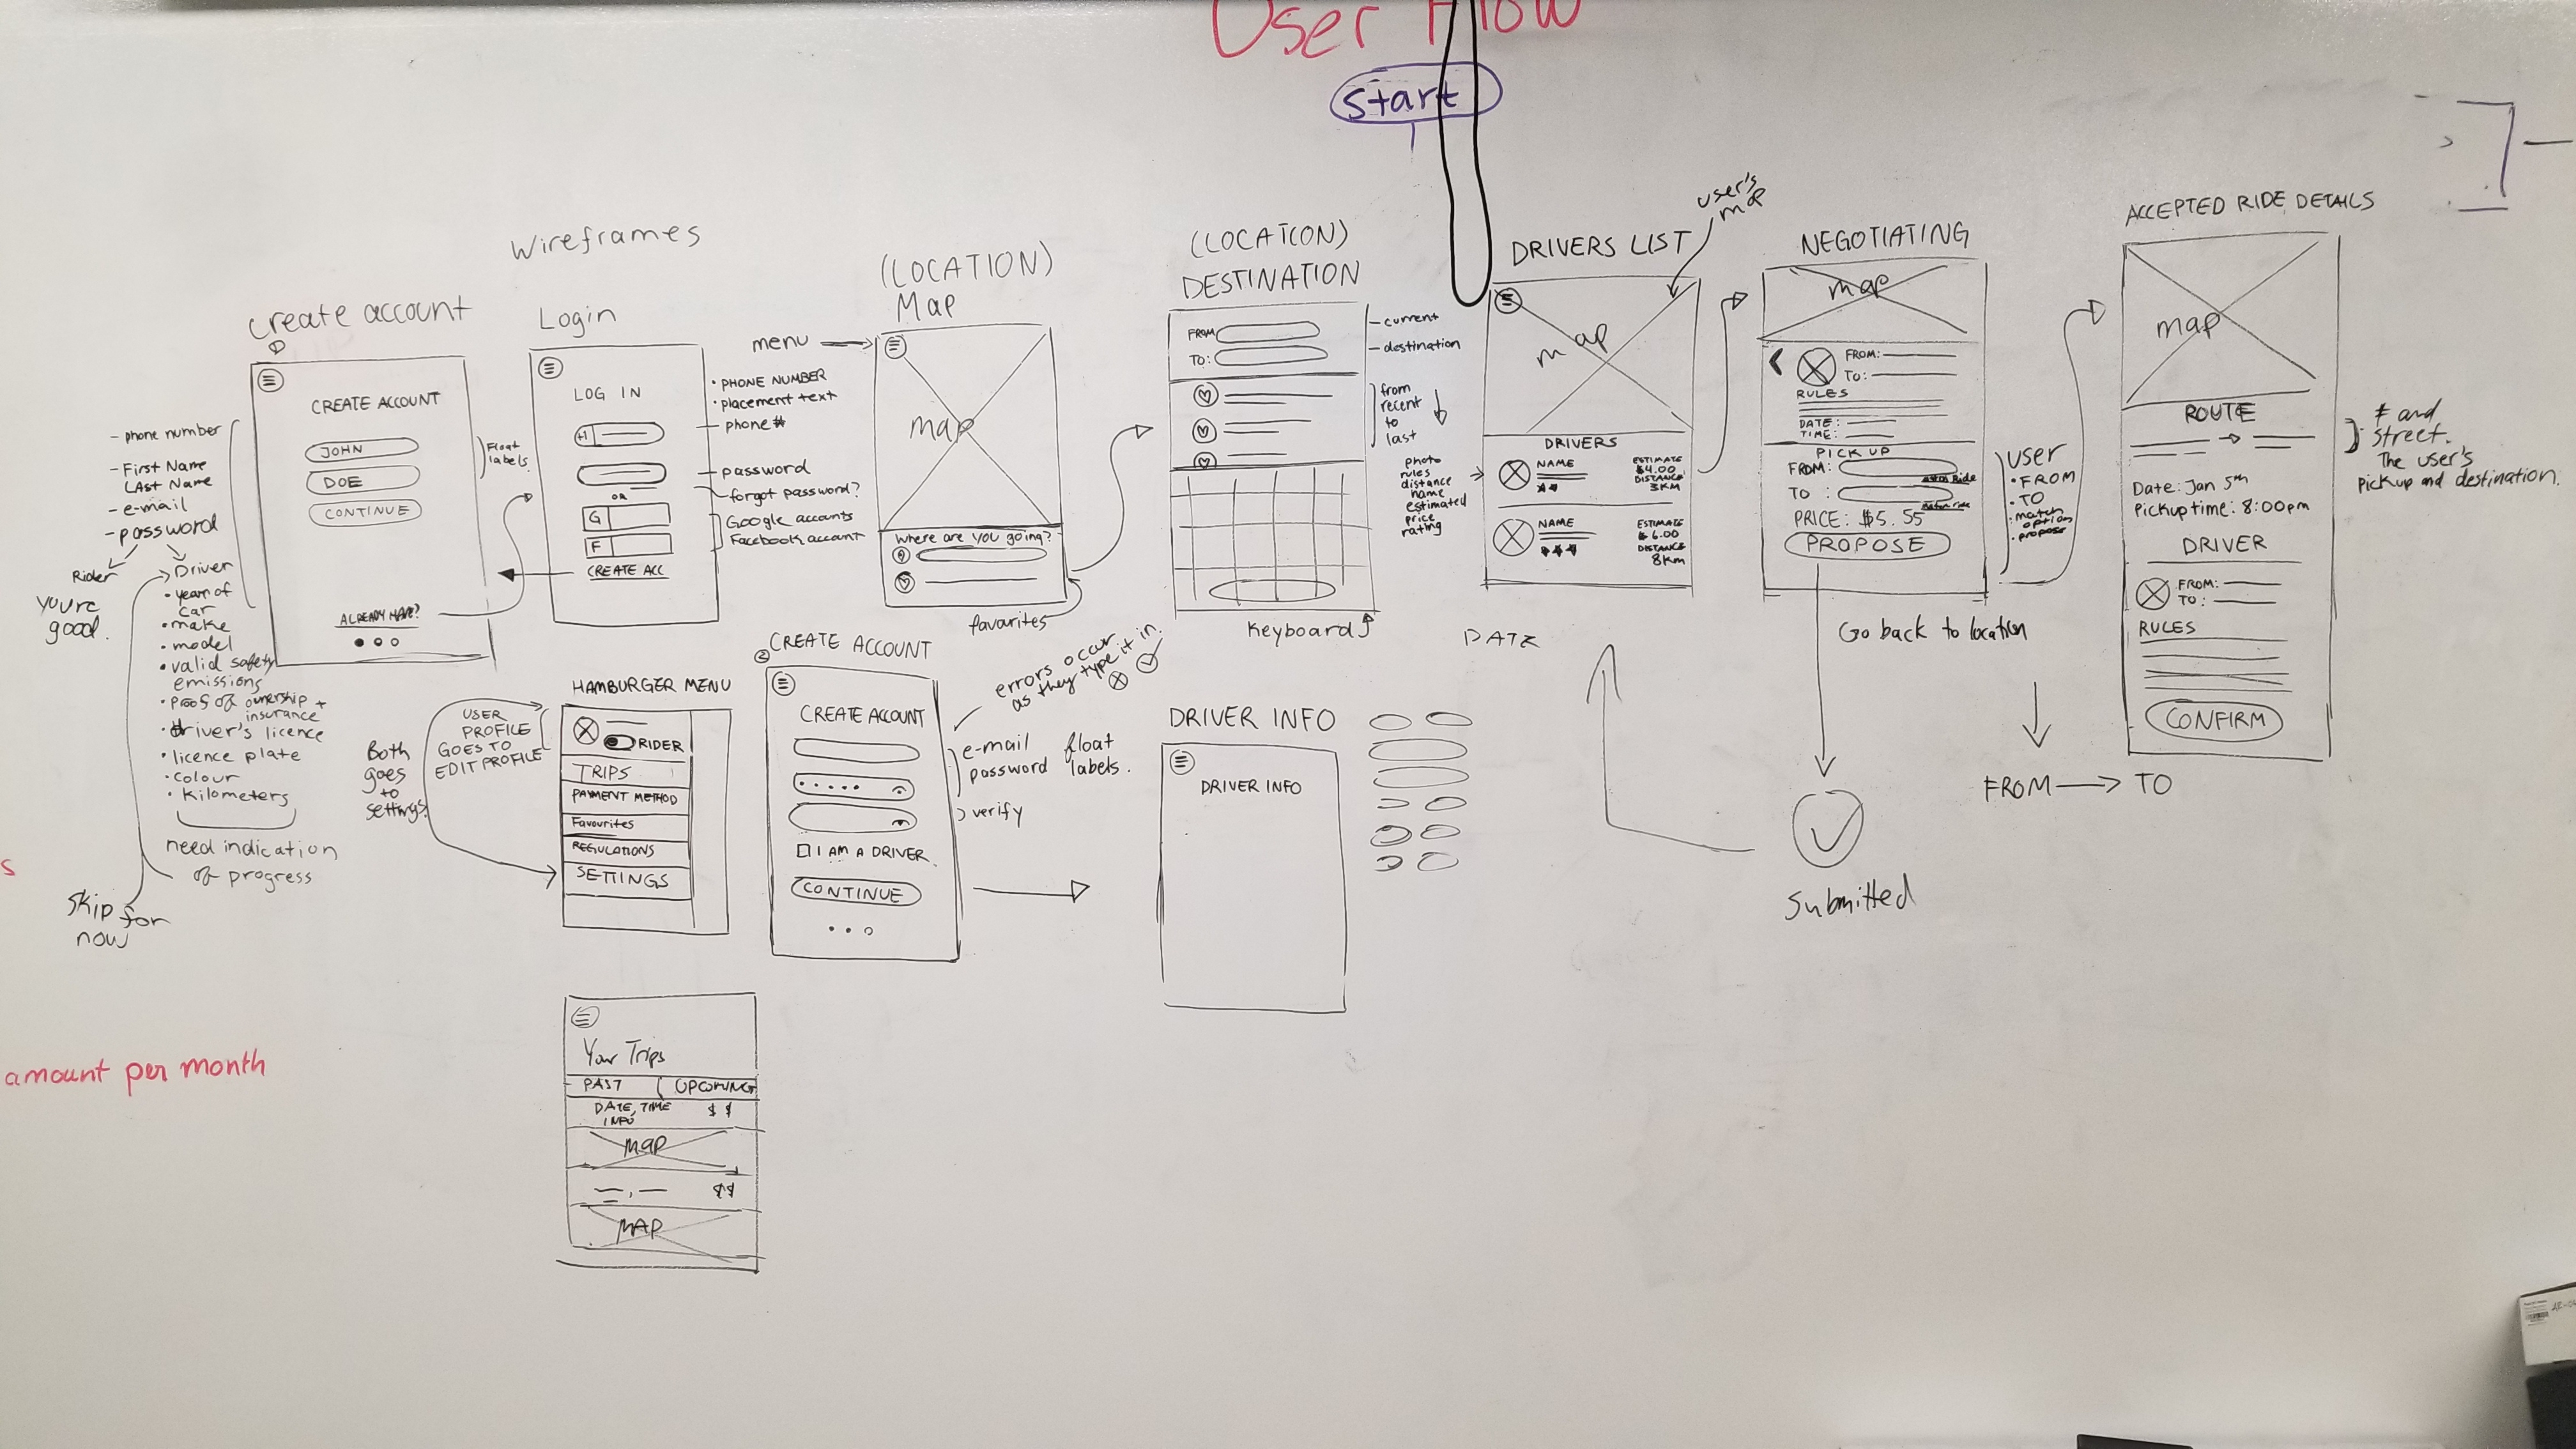 User Flow
Start
Wireframes
Create account
CREATE ACCOUNT
JOHN
DOE
CONTINUE
ALREADY HAVE?
Float
labels
- phone number
- First Name
LAst Name
- e-mail
- password
Rider
you're
good.
Driver
• year of
car
• make
• model
• valid safety
emissions
• proof of ownership +
insurance
• driver's licence
• licence plate
• colour
• kilometers
need indication
of progress
skip for
now
Login
LOG IN
+1
OR
G
F
CREATE ACC
• PHONE NUMBER
• placement text
phone #
password
forgot password?
Google accounts
Facebook account
menu
(LOCATION)
Map
map
Where are you going?
favourites
(LOCATION)
DESTINATION
FROM
TO:
- current
- destination
from
recent
to
last
Keyboard
DRIVERS LIST
user's
map
map
DRIVERS
NAME
ESTIMATE
$4.00
DISTANCE
3KM
NAME
ESTIMATE
$6.00
DISTANCE
8Km
photo
rules
distance
name
estimated
price
rating
DATE
NEGOTIATING
map
FROM:
To:
RULES
DATE:
TIME:
PICK UP
FROM:
TO :
PRICE: $5.55
PROPOSE
user
• FROM
• TO
• match
option
• propose
Go back to location
Submitted
FROM → TO
ACCEPTED RIDE DETAILS
map
ROUTE
Date: Jan 5th
Pickup time: 8:00pm
DRIVER
FROM:
TO:
RULES
CONFIRM
# and
street.
The user's
pickup and destination.
HAMBURGER MENU
USER
PROFILE
GOES TO
EDIT PROFILE
Both
goes
to
settings.
RIDER
TRIPS
PAYMENT METHOD
Favourites
REGULATIONS
SETTINGS
2
CREATE ACCOUNT
CREATE ACCOUNT
I AM A DRIVER.
CONTINUE
errors occur
as they type it in.
e-mail
password
float
labels.
verify
DRIVER INFO
DRIVER INFO
Your Trips
PAST
UPCOMING
DATE, TIME
INFO
$ $
MAP
$$
MAP
s
amount per month